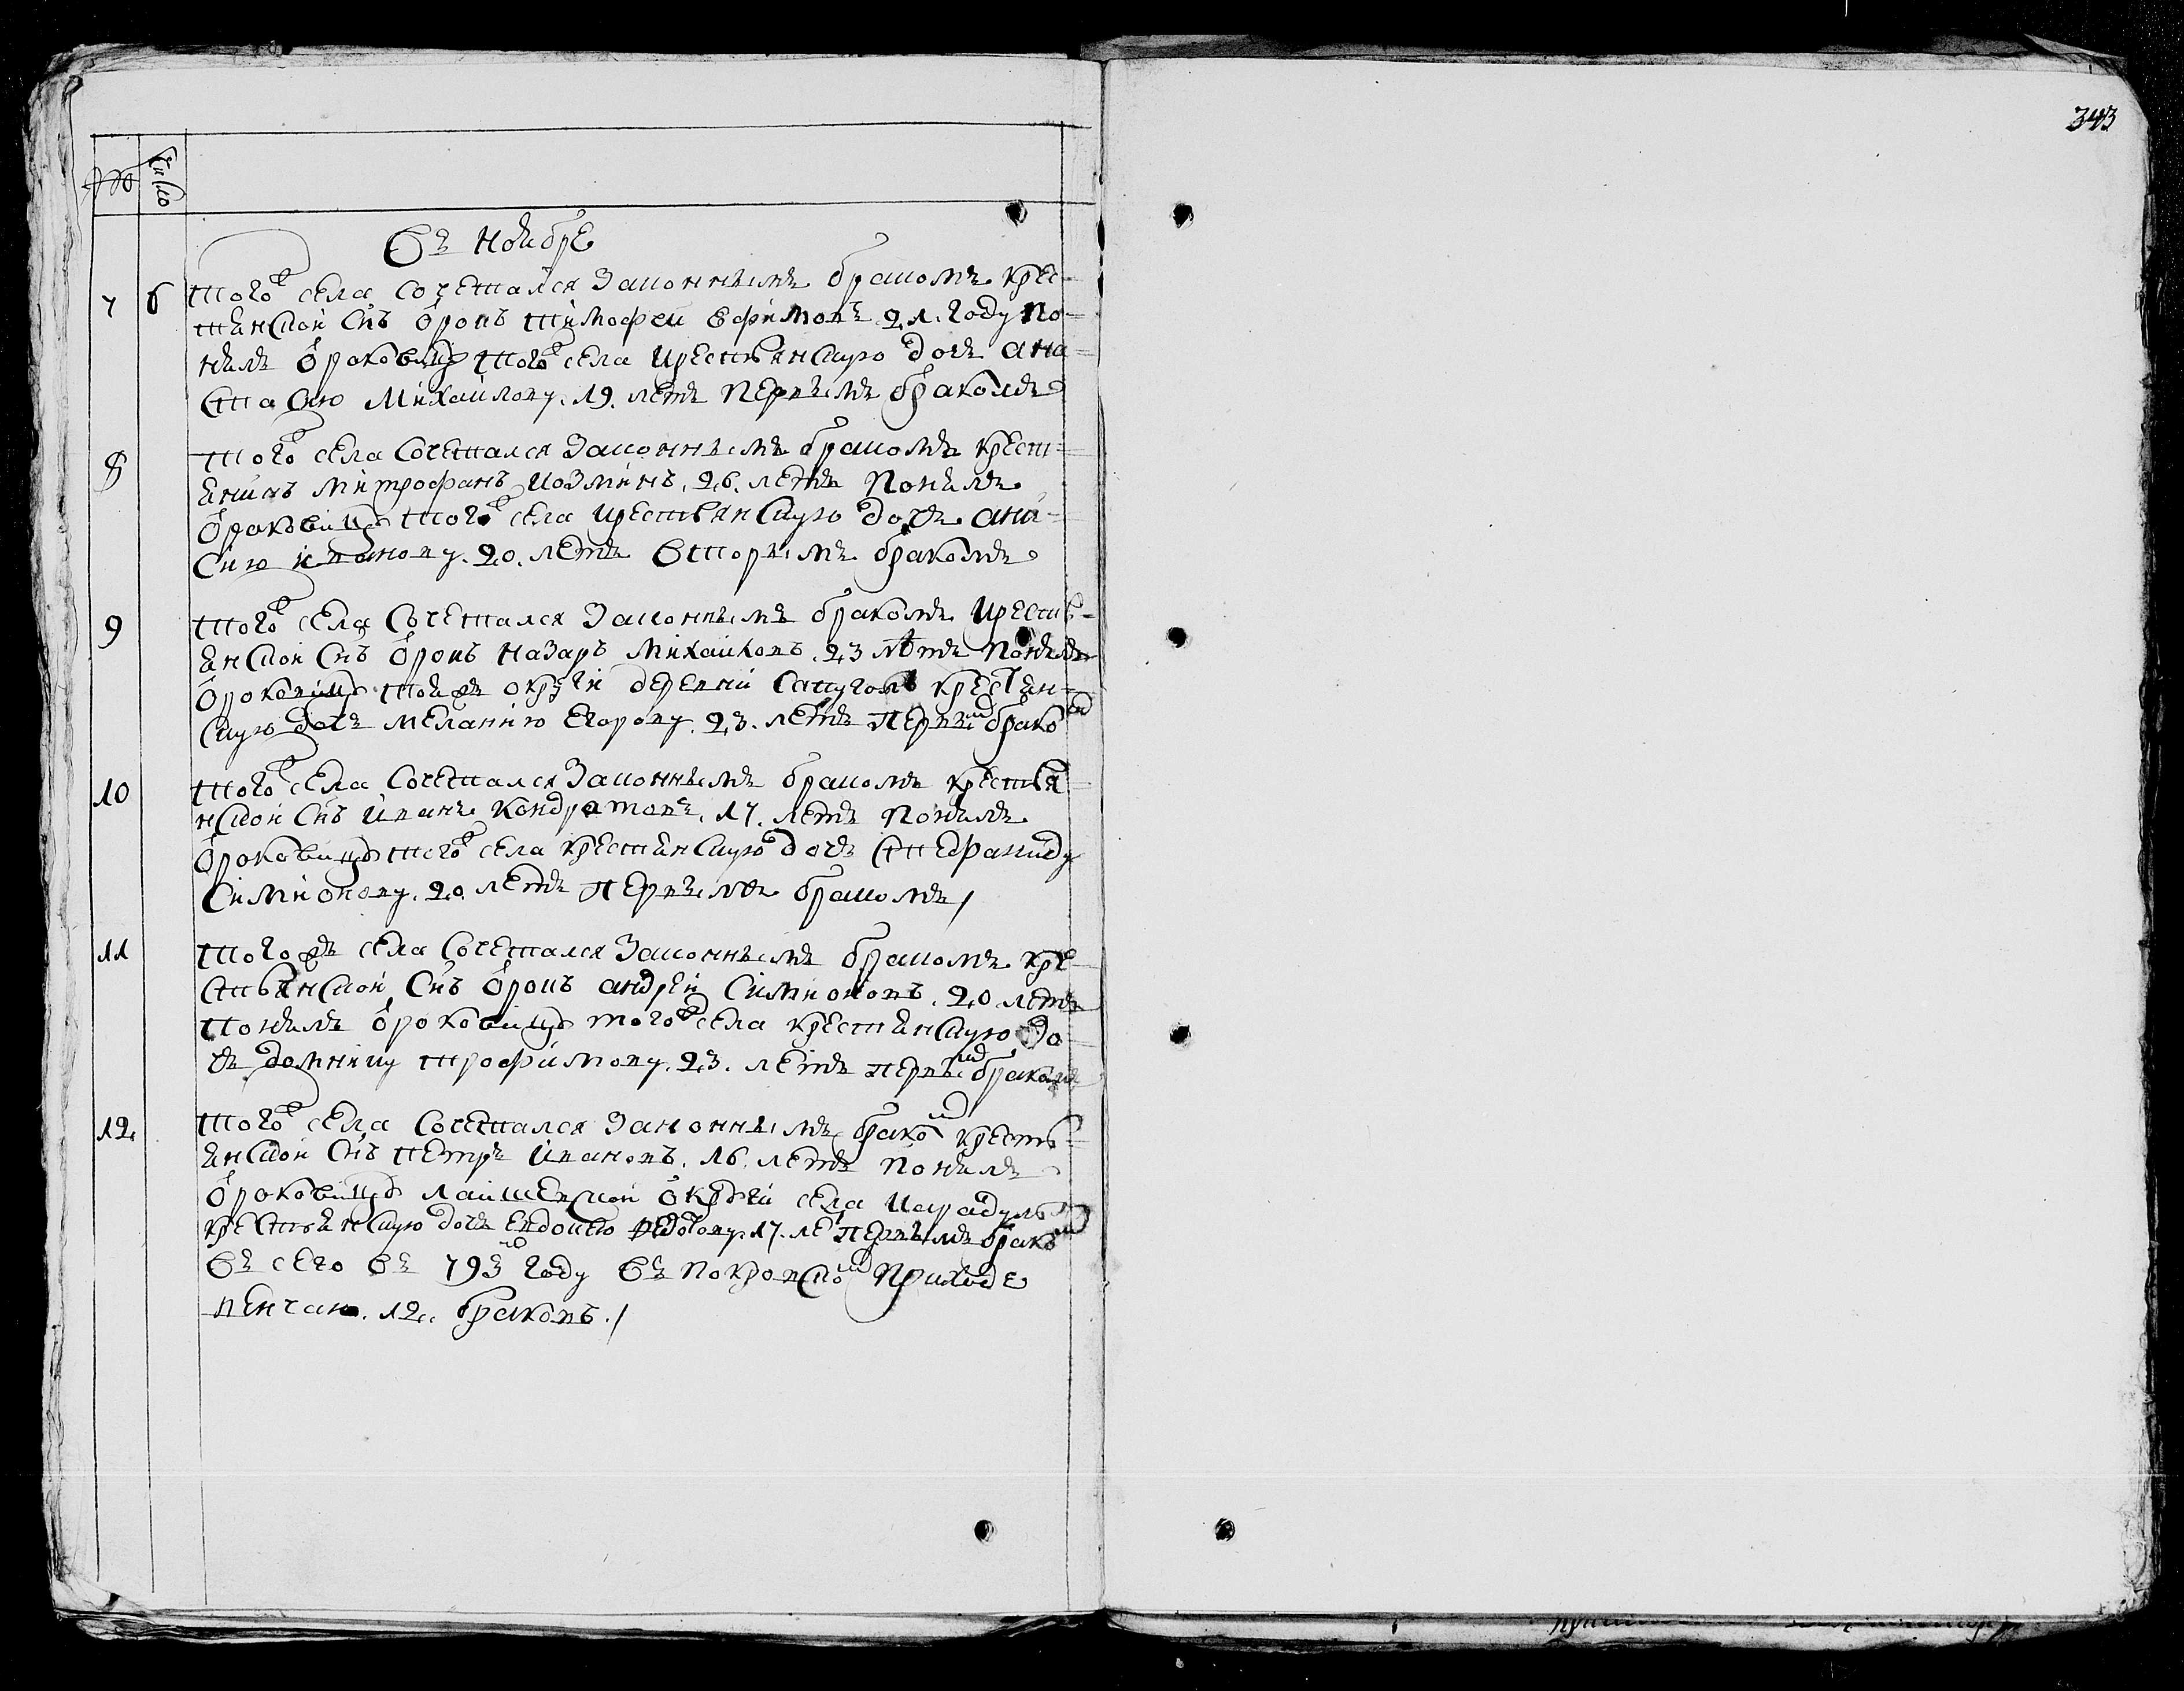 343
№ Число
Въ ноябре
7 6 того ж села сочетался законнымъ бракомъ крес-
тьянской снъ отрокъ тимофеи ефимовъ 21. году по-
нялъ отроковицу того ж села крестьянскую дочь ана-
стасию михаилову. 19. летъ первымъ бракомъ
8 того ж села сочетался законнымъ бракомъ крест-
янинъ митрофанъ козминъ. 26. летъ понялъ
отроковицу того ж села крестьянскую дочь ани-
сию иванову. 20. летъ вторымъ бракомъ
9 того ж села сочетался законнымъ бракомъ крестъ-
янской снъ отрокъ назаръ михаиловъ. 23 летъ понялъ
отроковицу тоя жъ округи деревни крестян-
скую дочь меланию егорову. 23. летъ первым браком
10 того ж села сочетался законнымъ бракомъ крестья-
нской снъ иванъ кондратовъ. 17. летъ понялъ
отроковицу того ж села крестянскую дочь стефаниду
симионову. 20 летъ первымъ бракомъ /
11 того жъ села сочетался законнымъ бракомъ кре-
стьянской снъ отрокъ андрей симионовъ. 20 летъ
понялъ отроковицу того ж села крестиянскую до-
чь домнику трофимову. 23. летъ первым бракомъ
12. того ж села сочетался законнымъ браком кресть-
янской снъ петръ ивановъ. 16. летъ понялъ
отроковицу лаишевской округи села
крестьянскую дочь евдокию 17. ле первымъ браком
Въ сего въ 793м году въ покровском приходе
венчано. 12. браковъ. /